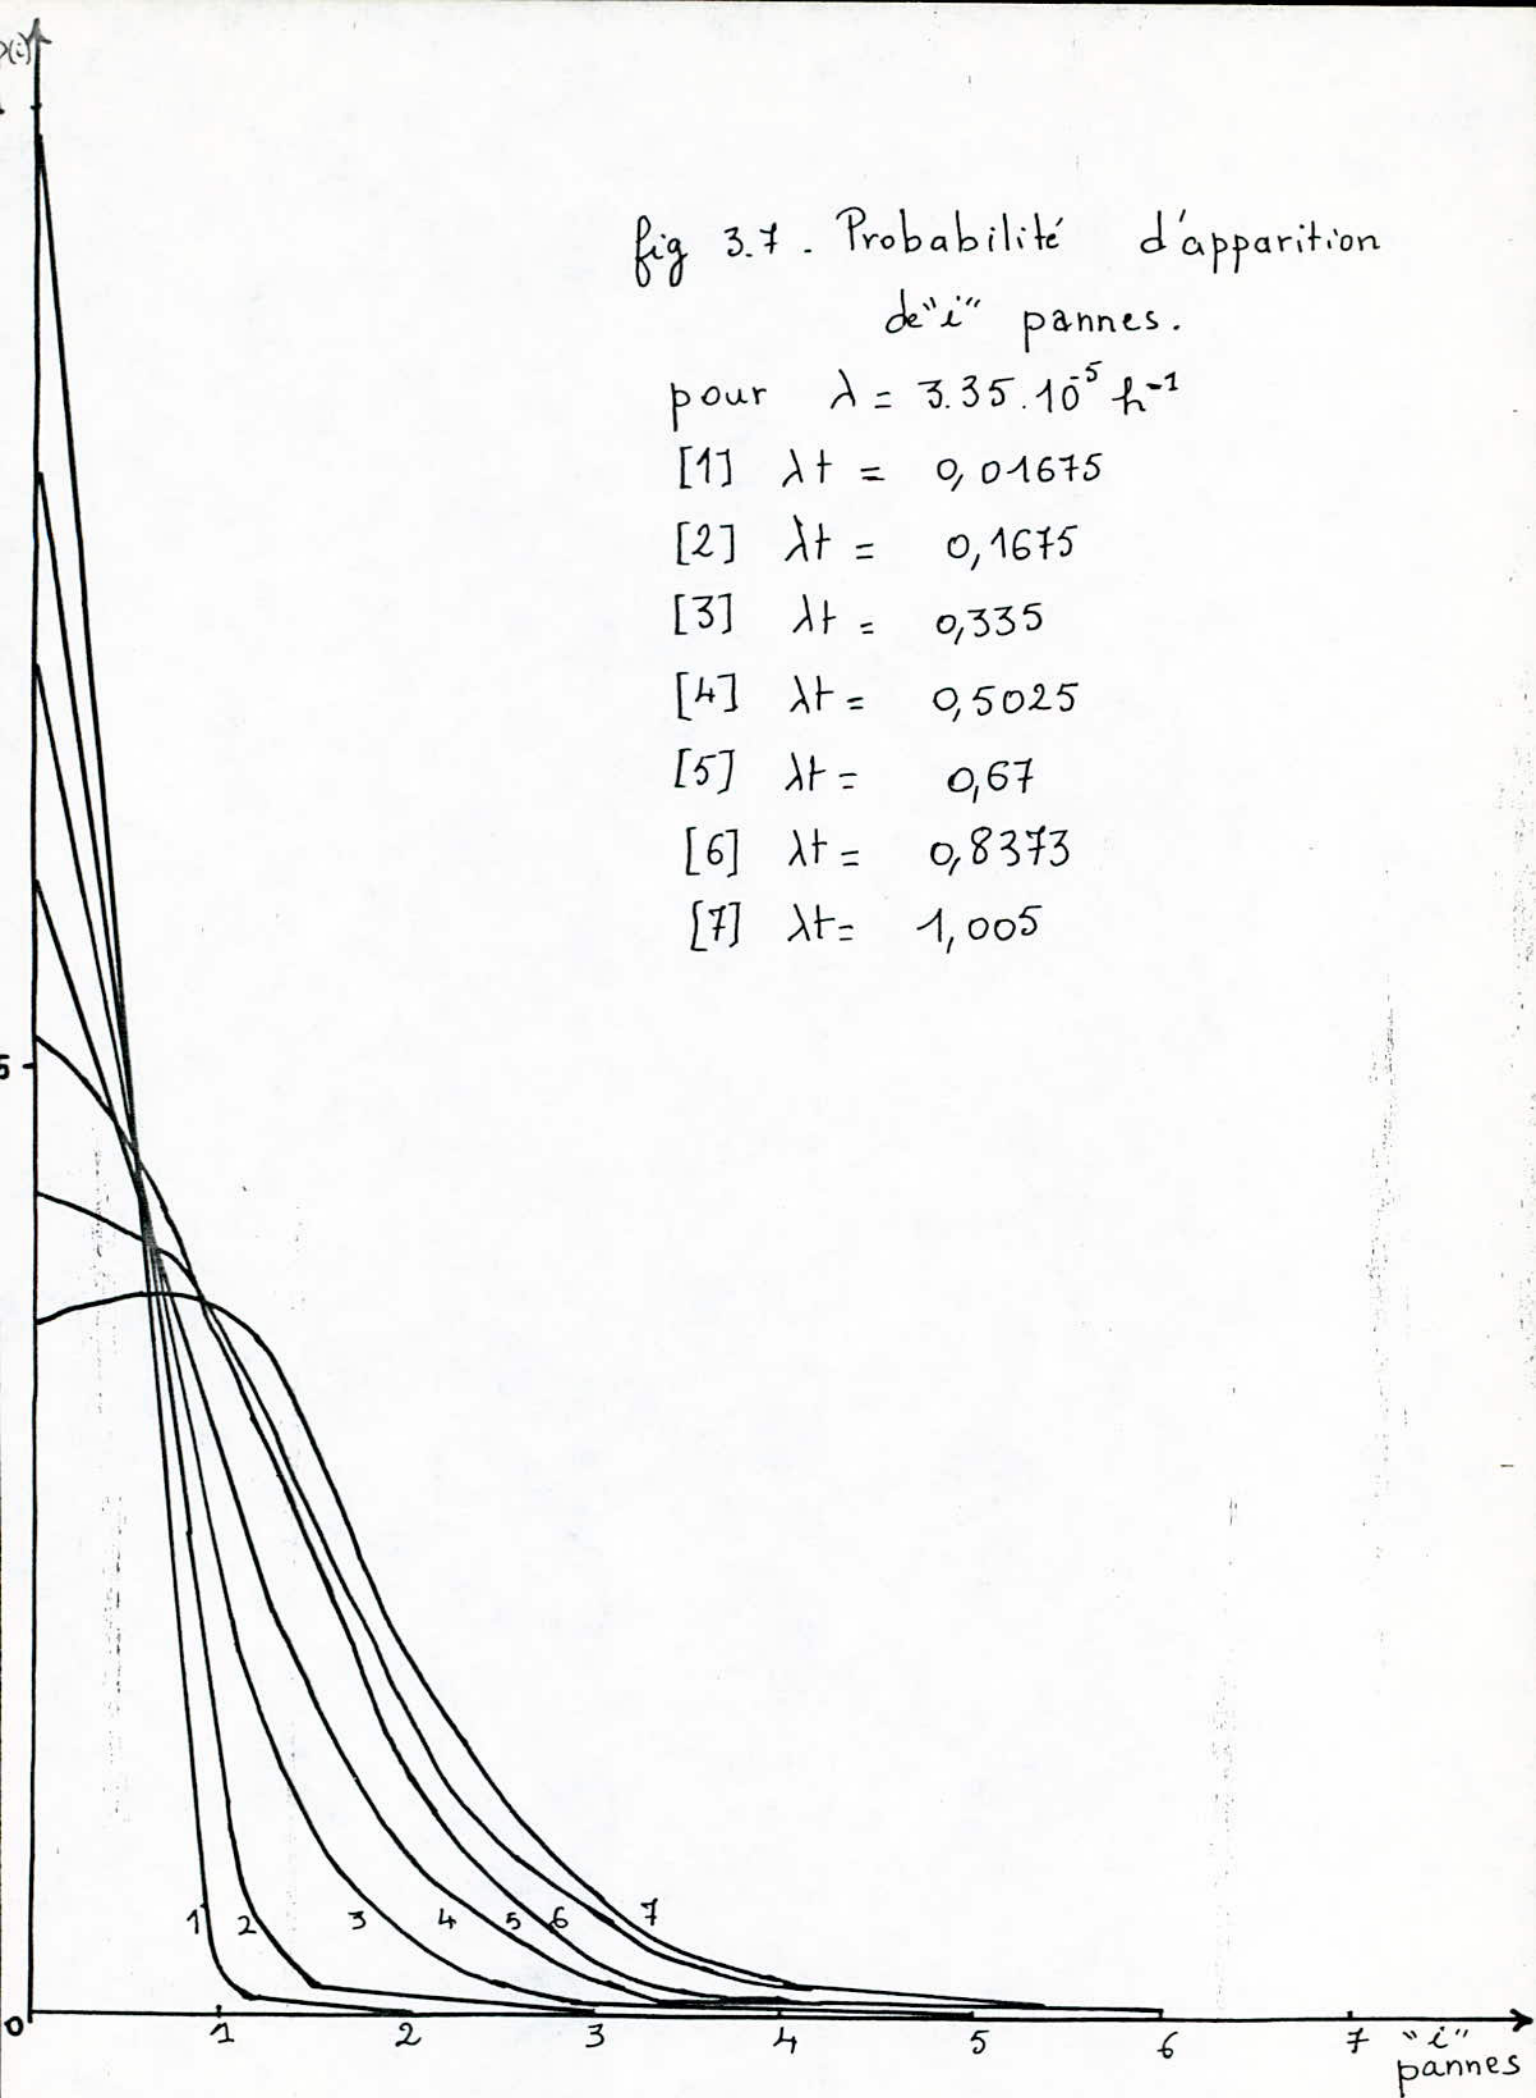 fig 3.7. Probabilité d'apparition
de "i" pannes.
pour λ = 3.35.10⁻⁵ h⁻¹
[1] λt = 0,01675
[2] λt = 0,1675
[3] λt = 0,335
[4] λt = 0,5025
[5] λt = 0,67
[6] λt = 0,8373
[7] λt = 1,005
1 2 3 4 5 6 7
0 1 2 3 4 5 6 7 "i"
pannes